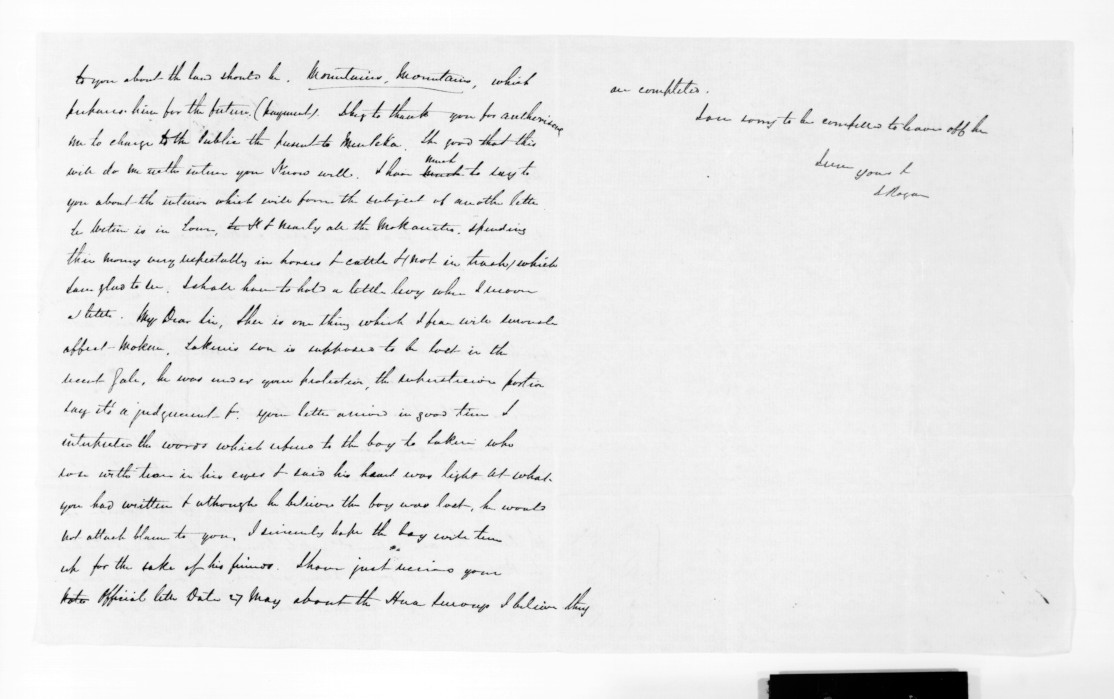 to you about the land should be. Mountains, Mountains, which
prepares him for the future. (payment). I beg to thank you for authorising
me to charge to the Public the present to Menteka. The good that this
will do me with the natives you know well. I have much to say to
you about the interior which will form the subject of another letter.
Te Wetini is in Town, & nearly all the spending
their money very respectably in horses & cattle & (not in trash) which
I am glad to see. I shall have to hold a little levy when I recover
a little. My Dear Sir, There is one thing which I fear will seriously
affect Mokau, Takerei's son is supposed to be lost in the
recent Gale, he was under your protection, the superstitious portion
say it's a judgement &. your letter arrived in good time. I
interpreted the words which referred to the boy to Takerei who
rose with tears in his eyes & said his heart was light at what
you had written & although he believed the boy was lost, he would
not attach blame to you. I sincerely hope the boy will turn
up for the sake of his friends. I have just received your
Official letter Date 27 May about the Hua surveys I believe they
are completed.
I am sorry to be compelled to leave off here
Sir yours &
J Rogan